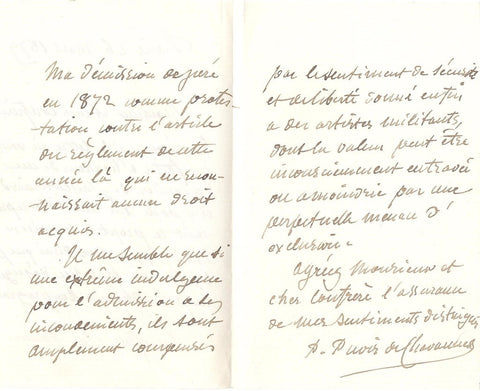 Ma démission de juré
en 1872 comme protes-
tation contre l'article
du règlement de cette
année là qui ne recon-
naissait aucun droit
acquis.
Il me semble que si
une extrême indulgence
pour l'admission a des
inconvénients, ils sont
amplement compensés
par le sentiment de sécurité
et de liberté donné enfin
a des artistes militants,
dont la valeur peut être
inconsciemment entravée
ou amoindrie par une
perpetuelle menace d'
exclusion.
Agréez Monsieur et
cher Confrère l'assurance
de mes sentiments distingués
P. Puvis de Chavannes